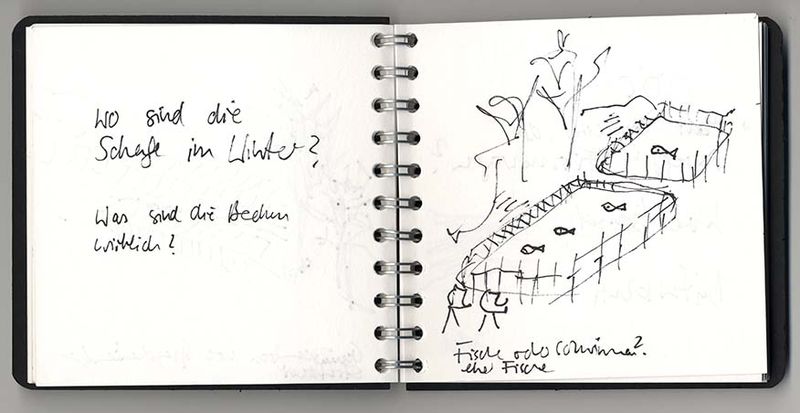 Wo sind die
Schafe im Winter?
Was sind die Becken
wirklich?
Fische oder Schwimmer?
eher Fische